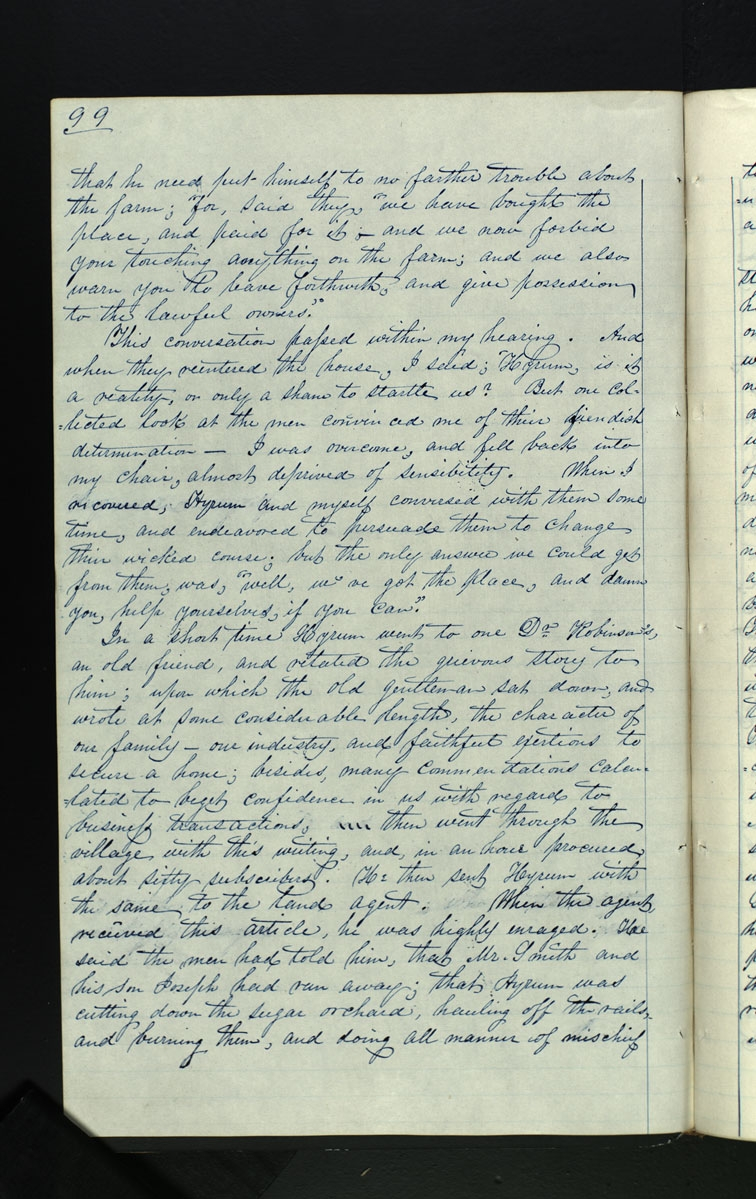 99
that he need put himself to no farther trouble about
the farm; "for, said they, "we have bought the
place, and paid for it; — and we now forbid
your touching anything on the farm; and we also
warn you to leave forthwith, and give possession
to the lawful owners."
This conversation passed within my hearing. And
when they reentered the house, I said; "Hyrum, is it
a reality, or only a sham to startle us? But one col-
=lected look at the men convinced me of their fiendish
determination — I was overcome, and fell back into
my chair, almost deprived of sensibility. When I
recovered, Hyrum and myself conversed with them some
time, and endeavored to persuade them to change
their wicked course; but the only answer we could get
from them, was, "well, we've got the place, and damn
you, help yourselves, if you can."
In a short time Hyrum went to one Dr. Robinson's,
an old friend, and related the grievous story to
him; upon which the old gentleman sat down, and
wrote at some considerable length, the character of
our family — our industry, and faithful exertions to
secure a home; besides, many commendations calcu-
=lated to beget confidence in us with regard to
business transactions; then went through the
village with this writing, and, in an hour procured
about sixty subscribers. He then sent Hyrum with
the same, to the land agent. When the agent,
received this article, he was highly enraged. He
said the men had told him, that Mr. Smith and
his son Joseph had run away; that Hyrum was
cutting down the sugar orchard, hauling off the rails,
and burning them, and doing all manner of mischief